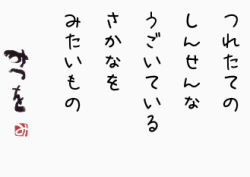 つれたての
しんせんな
うごいている
さかなを
みたいもの
みつを
み